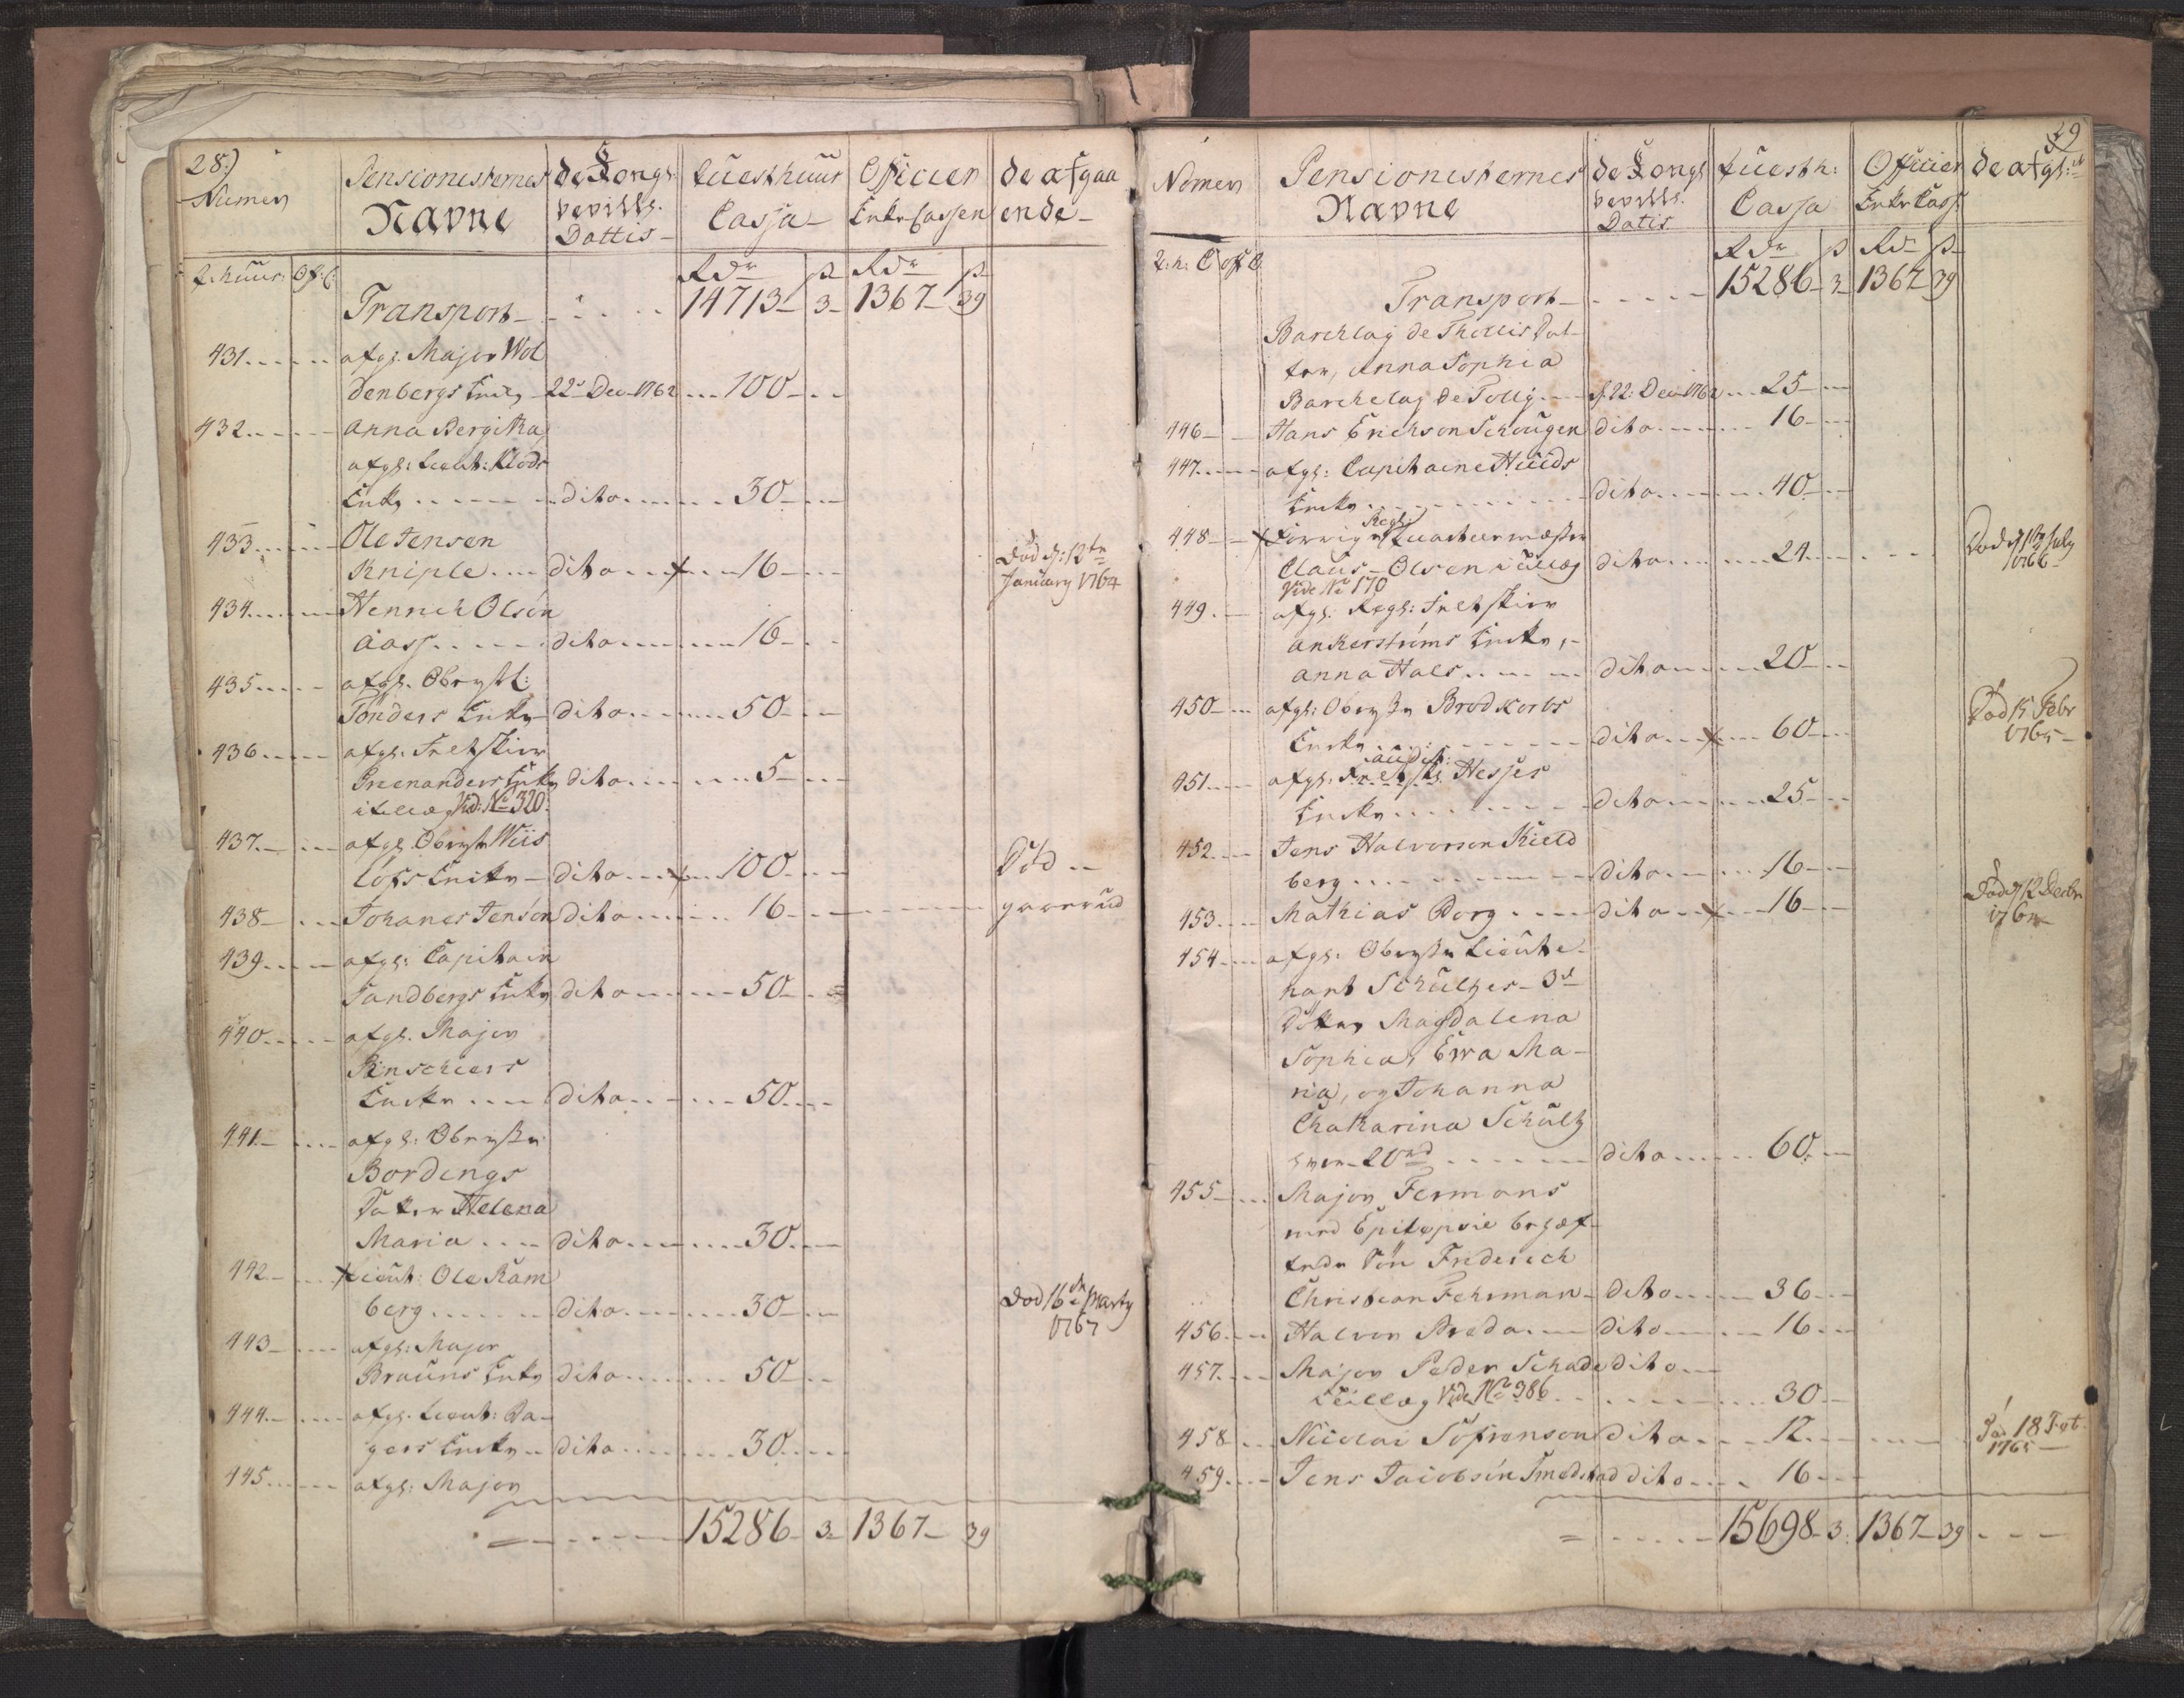 28.)
Numer
Pensionisternes
Navne
de Kongl.
bevillg.
Dattis
Tuesthuus
Cassa
Officier
Enke Cassen
de afgaa
ende
t. huus: Of: C:
Rdr ß Rdr ß
Transport 14713 3 1367 39
431 afgl. Major Wol
denbergs Enke 22 Dec 1762 100
432 Anna Bergitha
afgl: Lieut: Klods
Enke dito 30
433 Ole Jensen
Kniple dito 16 Död d: 12te
January 1764
434 Hennich Olsen
Aass dito 16
435 afgl. Obrystl:
Tönders Enke dito 50
436 afgl. Tretskiver
Grenanders Enke dito 5
i tillæg Vid: No 320
437 afgl. Obryst Wiis
löfs Enke dito 100 Död
438 Johanes Jensen dito 16
439 afgl: Capitain
Sandbergs Enke dito 50
440 afgl. Major
Enke dito 50
441 afgl: Obryster
Bordings
Datter Helena
Maria dito 30
442 Lieut: Ole Ram
berg dito 30 Död 16de Marty
1767
443 afgl: Major
Brauns Enke dito 50
444 afgl. Lieut: Da-
gers Enke dito 30
445 afgl: Major
15286 3 1367 39
29
Nomer
Pensionisternes
Navne
de Kongl
bevillg.
Datis
Tuesth:
Cassa
Officier
Enke Cass:
de afgl:
t: h: C off C
Rdr ß Rdr ß
Transport 15286 3 1367 39
Barchlay de Thollis Dat-
ter, Anna Sophia
Barchelay de Tolly d. 22: Dec 1762 25
446 Hans Erichson Schougen dito 16
447 afgl: Capitaine Huids
Enke dito 40
Regl:
448 Forrige Quarteermester
Claus Olsen tillæg dito 24 Död d 1ste July
1766
Vide No 170
449 afgl. Regl: Feltskier
Ankerströms Enke,
Anna Hals dito 20
450 afgl: Obryste Brodkorbs
Enke dito 60 Död 15 Febr
1765
audit:
451 afgl. Hesses
Enke dito 25
452 Jens Halvorsen Kield
berg dito 16
453 Mathias Borg dito 16 Död d 12 Decbr
1764
454 afgl. Obryste Lieute-
nant Schultzes 3de
Döttre Magdalena
Sophia, Ewa Ma-
ria, og Johanna
Chatarina Schultz
hver 20rd dito 60
455 Major Fermans
med Epilepsie behæf-
tede Sön Friderich
Christian Fehrman dito 36
456 Halvor Breda dito 16
457 Major Peder Schade dito
tillæg Vide No 386 30
458 Nicolai Sofrenson dito 12 18 Feb
1765
459 Jens Jacobsen Smedstad dito 16
15698 3 1367 39